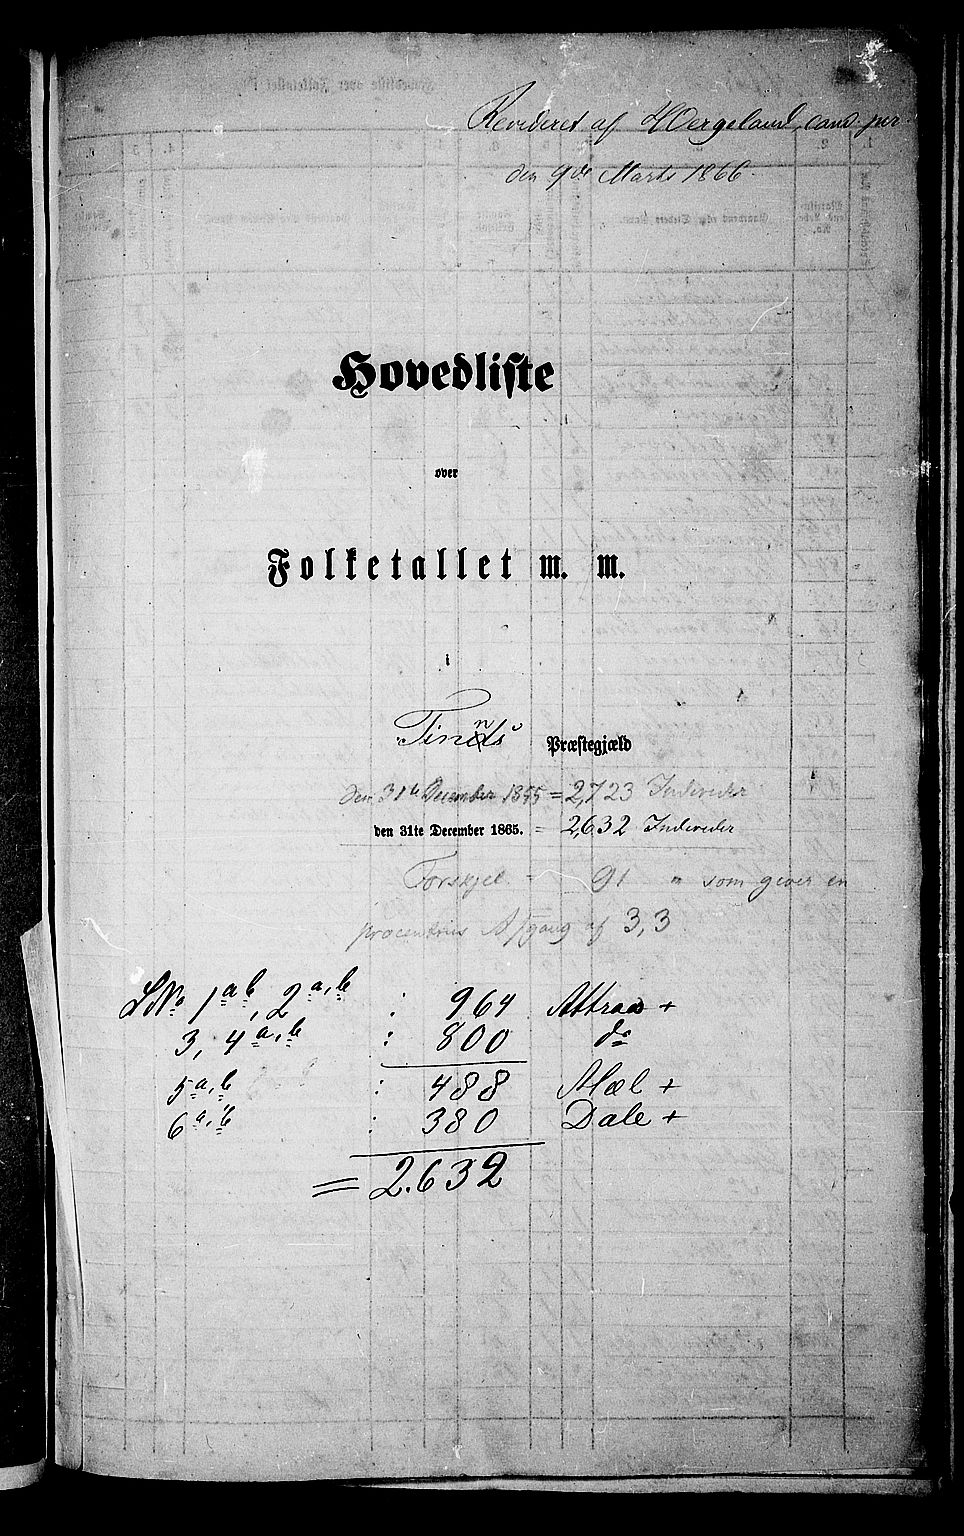 Revideret af HWergeland, cand. jur
den 9de Marts 1866.
Hovedliste
over
Folketallet m. m.
i
Tinds Præstegjæld
den 31te December 1855 = 2,723 Individer
den 31te December 1865. = 2,632 Individer
Forskjel = 91 " som giver en
procentvis Afgang af 3,3
LNo 1 a b, 2 a, b : 964 Attraa +
3, 4 a, b : 800 do
5 a, b : 488 Mæl +
6 a, b : 380 Dale +
= 2.632